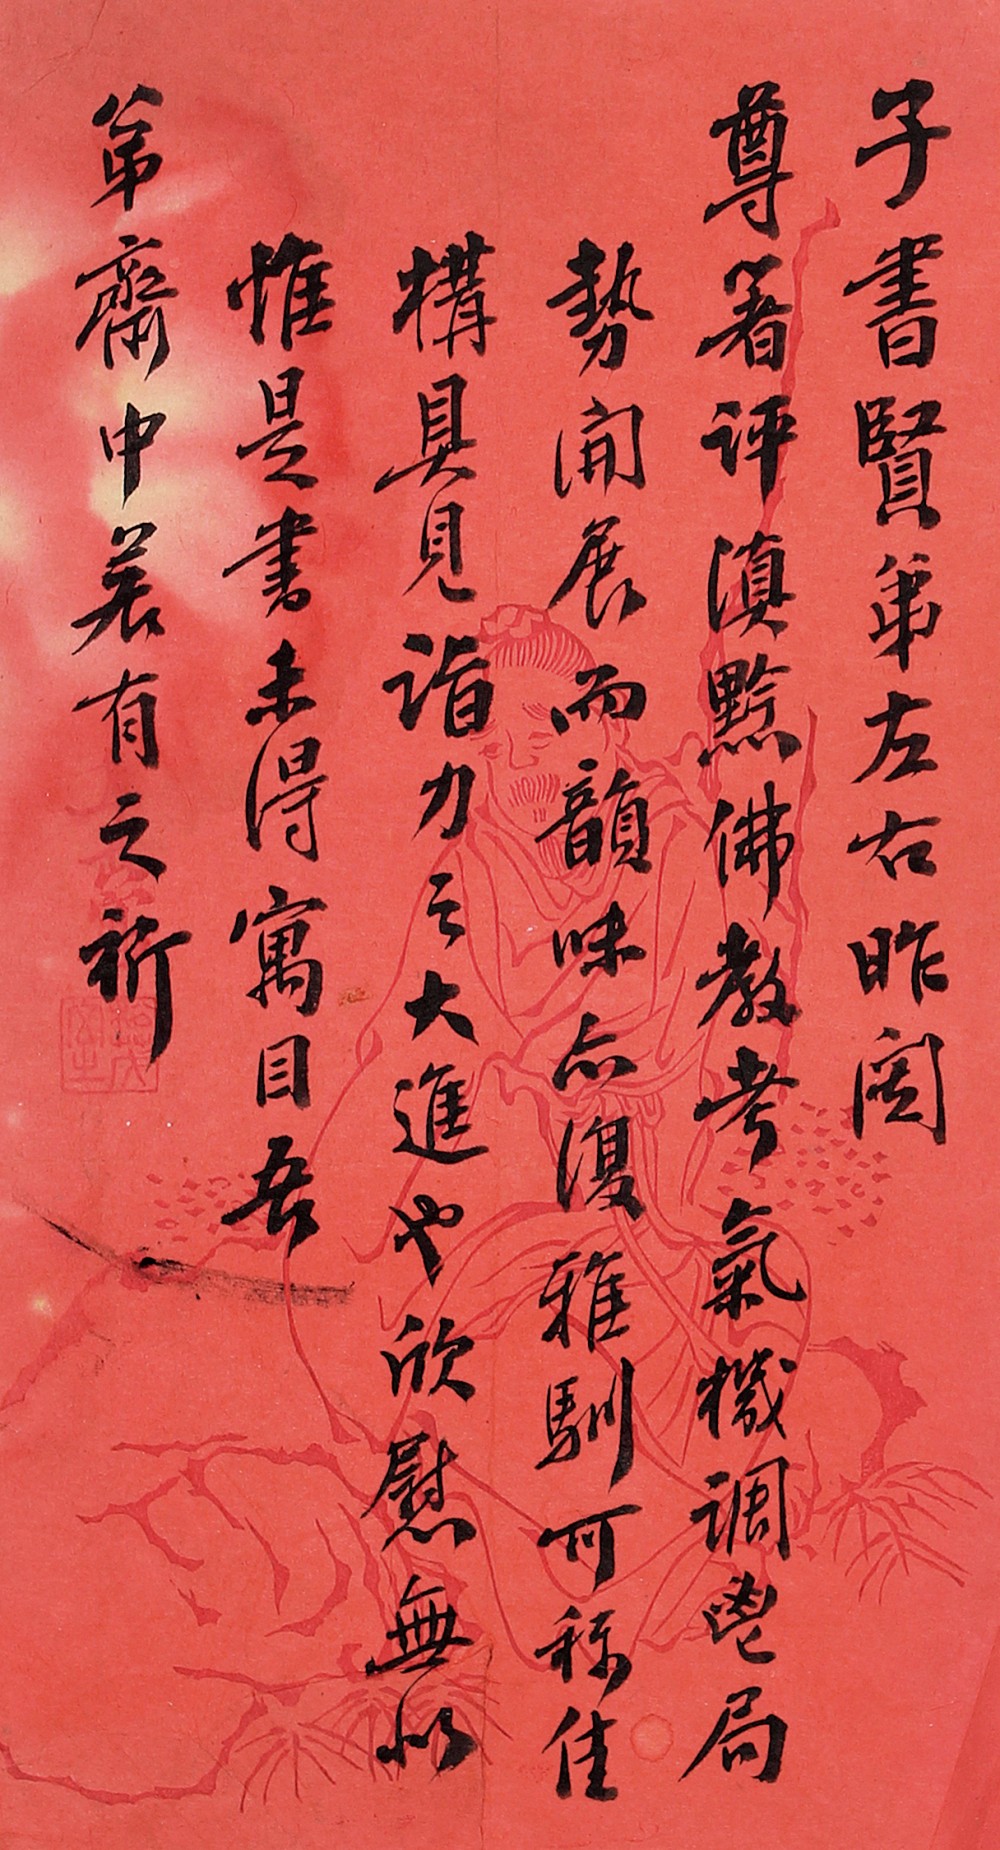 子書賢弟左右昨閱
尊著評滇黔佛教考氣機調鬯局
勢開展而韻味亦復雅馴可稱佳
構具見詣力之大進也欣慰無似
惟是書未得寓目吾
弟齋中若有之祈